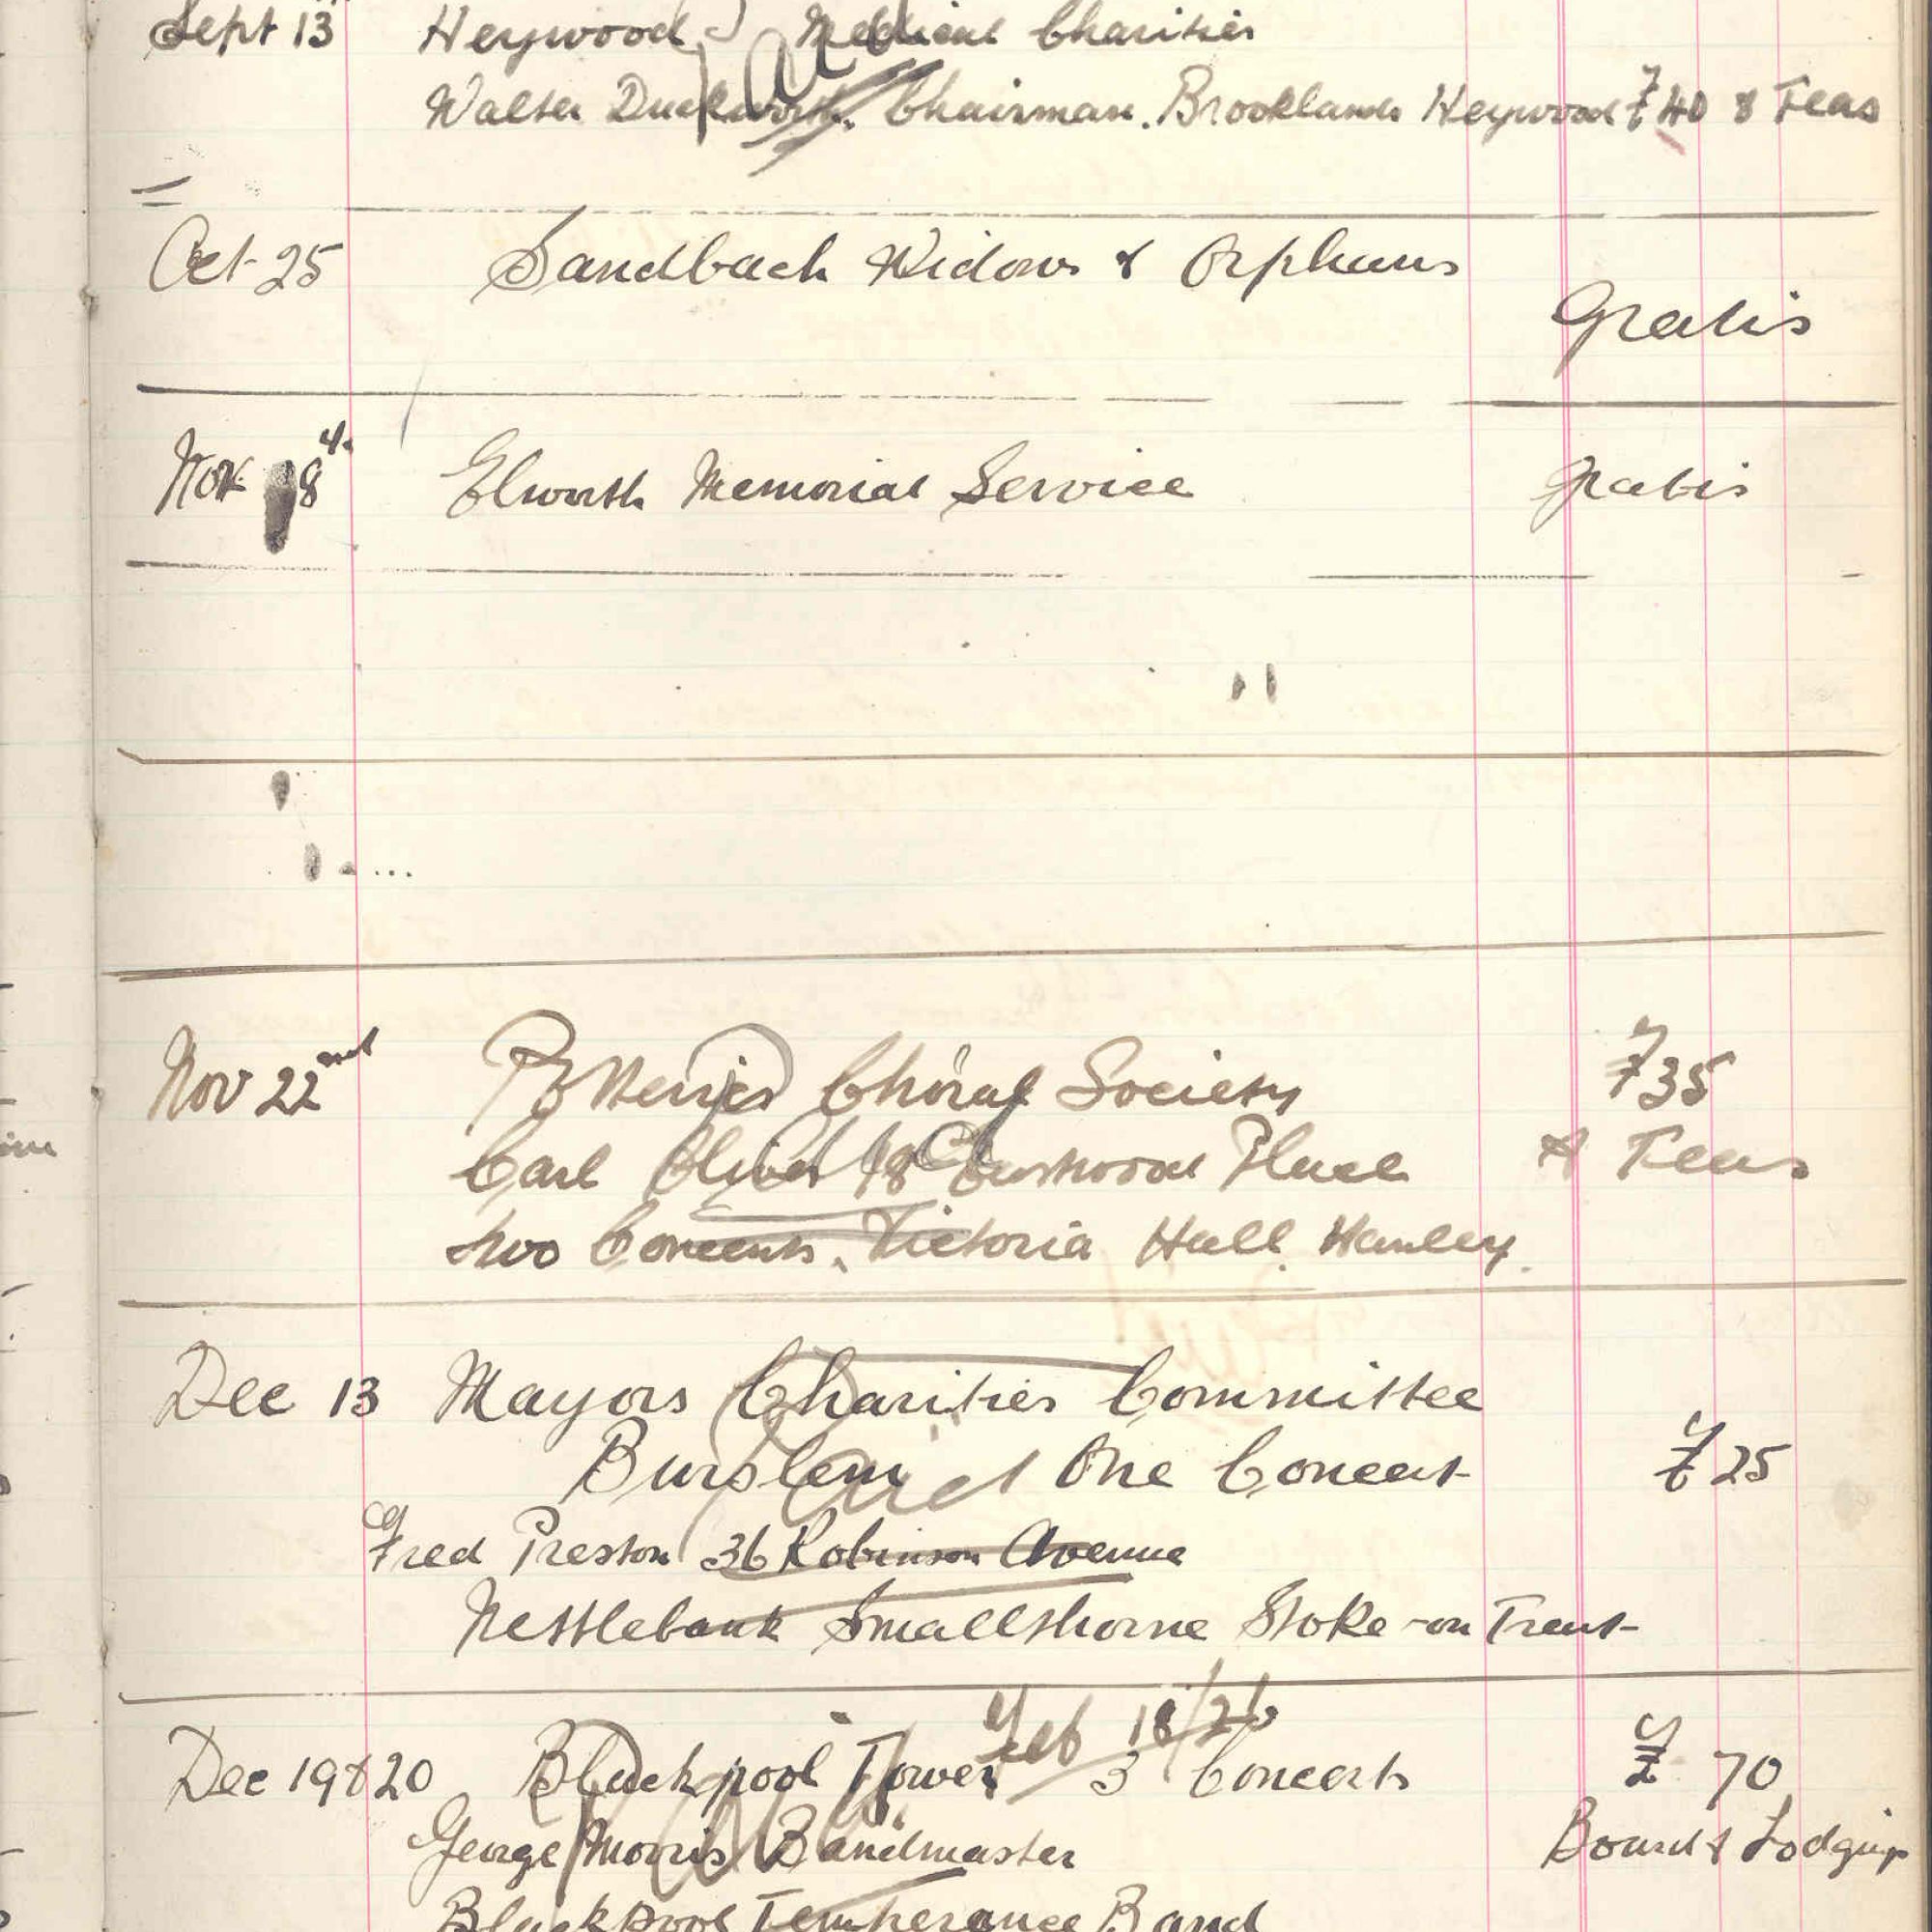 Sept 13 Heywood Medical Charities
Walter Duckworth. Chairman. Brooklands Heywood £40 & Teas
Oct 25 Sandbach Widows & Orphans
Gratis
Nov 8th Elworth Memorial Service Gratis
Nov 22nd Potteries Choral Society £35
Carl Oliver 18 Place & Teas
two Concerts. Victoria Hall. Hanley.
Dec 13 Mayors Charities Committee
Burslem One Concert £25
Paid
Fred Preston 36 Robinson Avenue
Nettlebank Smallthorne Stoke-on Trent
Feb 18/26
Dec 19 & 20 Blackpool Tower 3 Concerts £70
Paid
George Morris Bandmaster Board & Lodgings
Blackpool Temperance Band